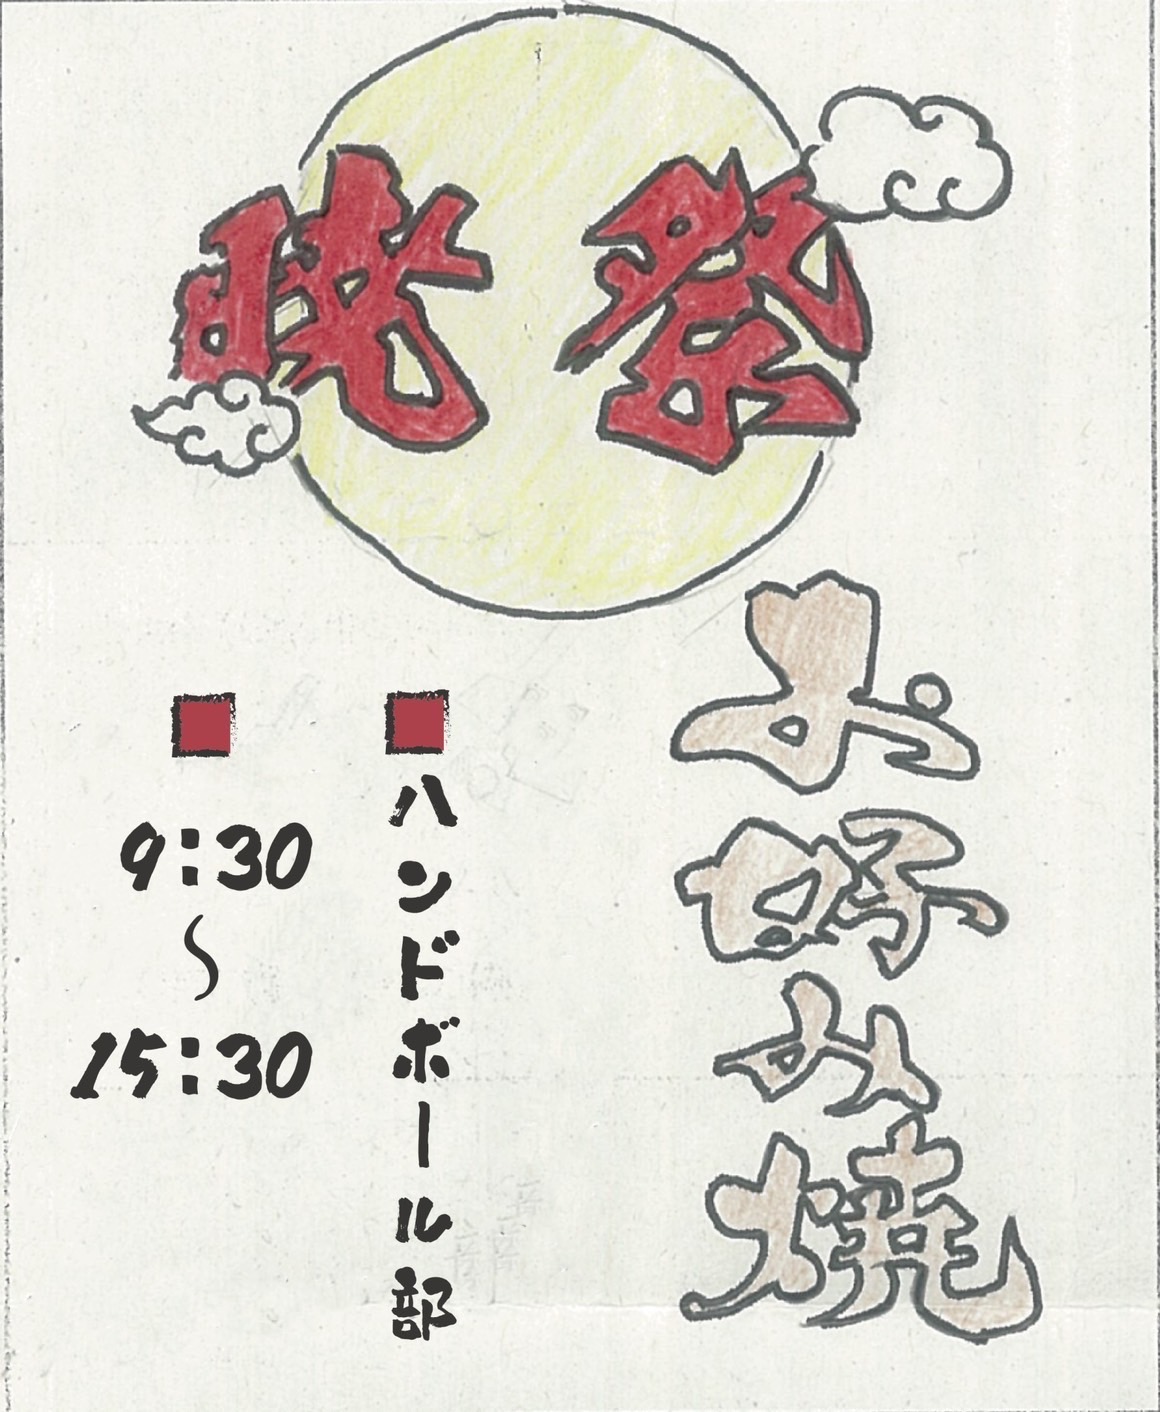 晄祭
お好み焼
■ハンドボール部
■9:30〜15:30